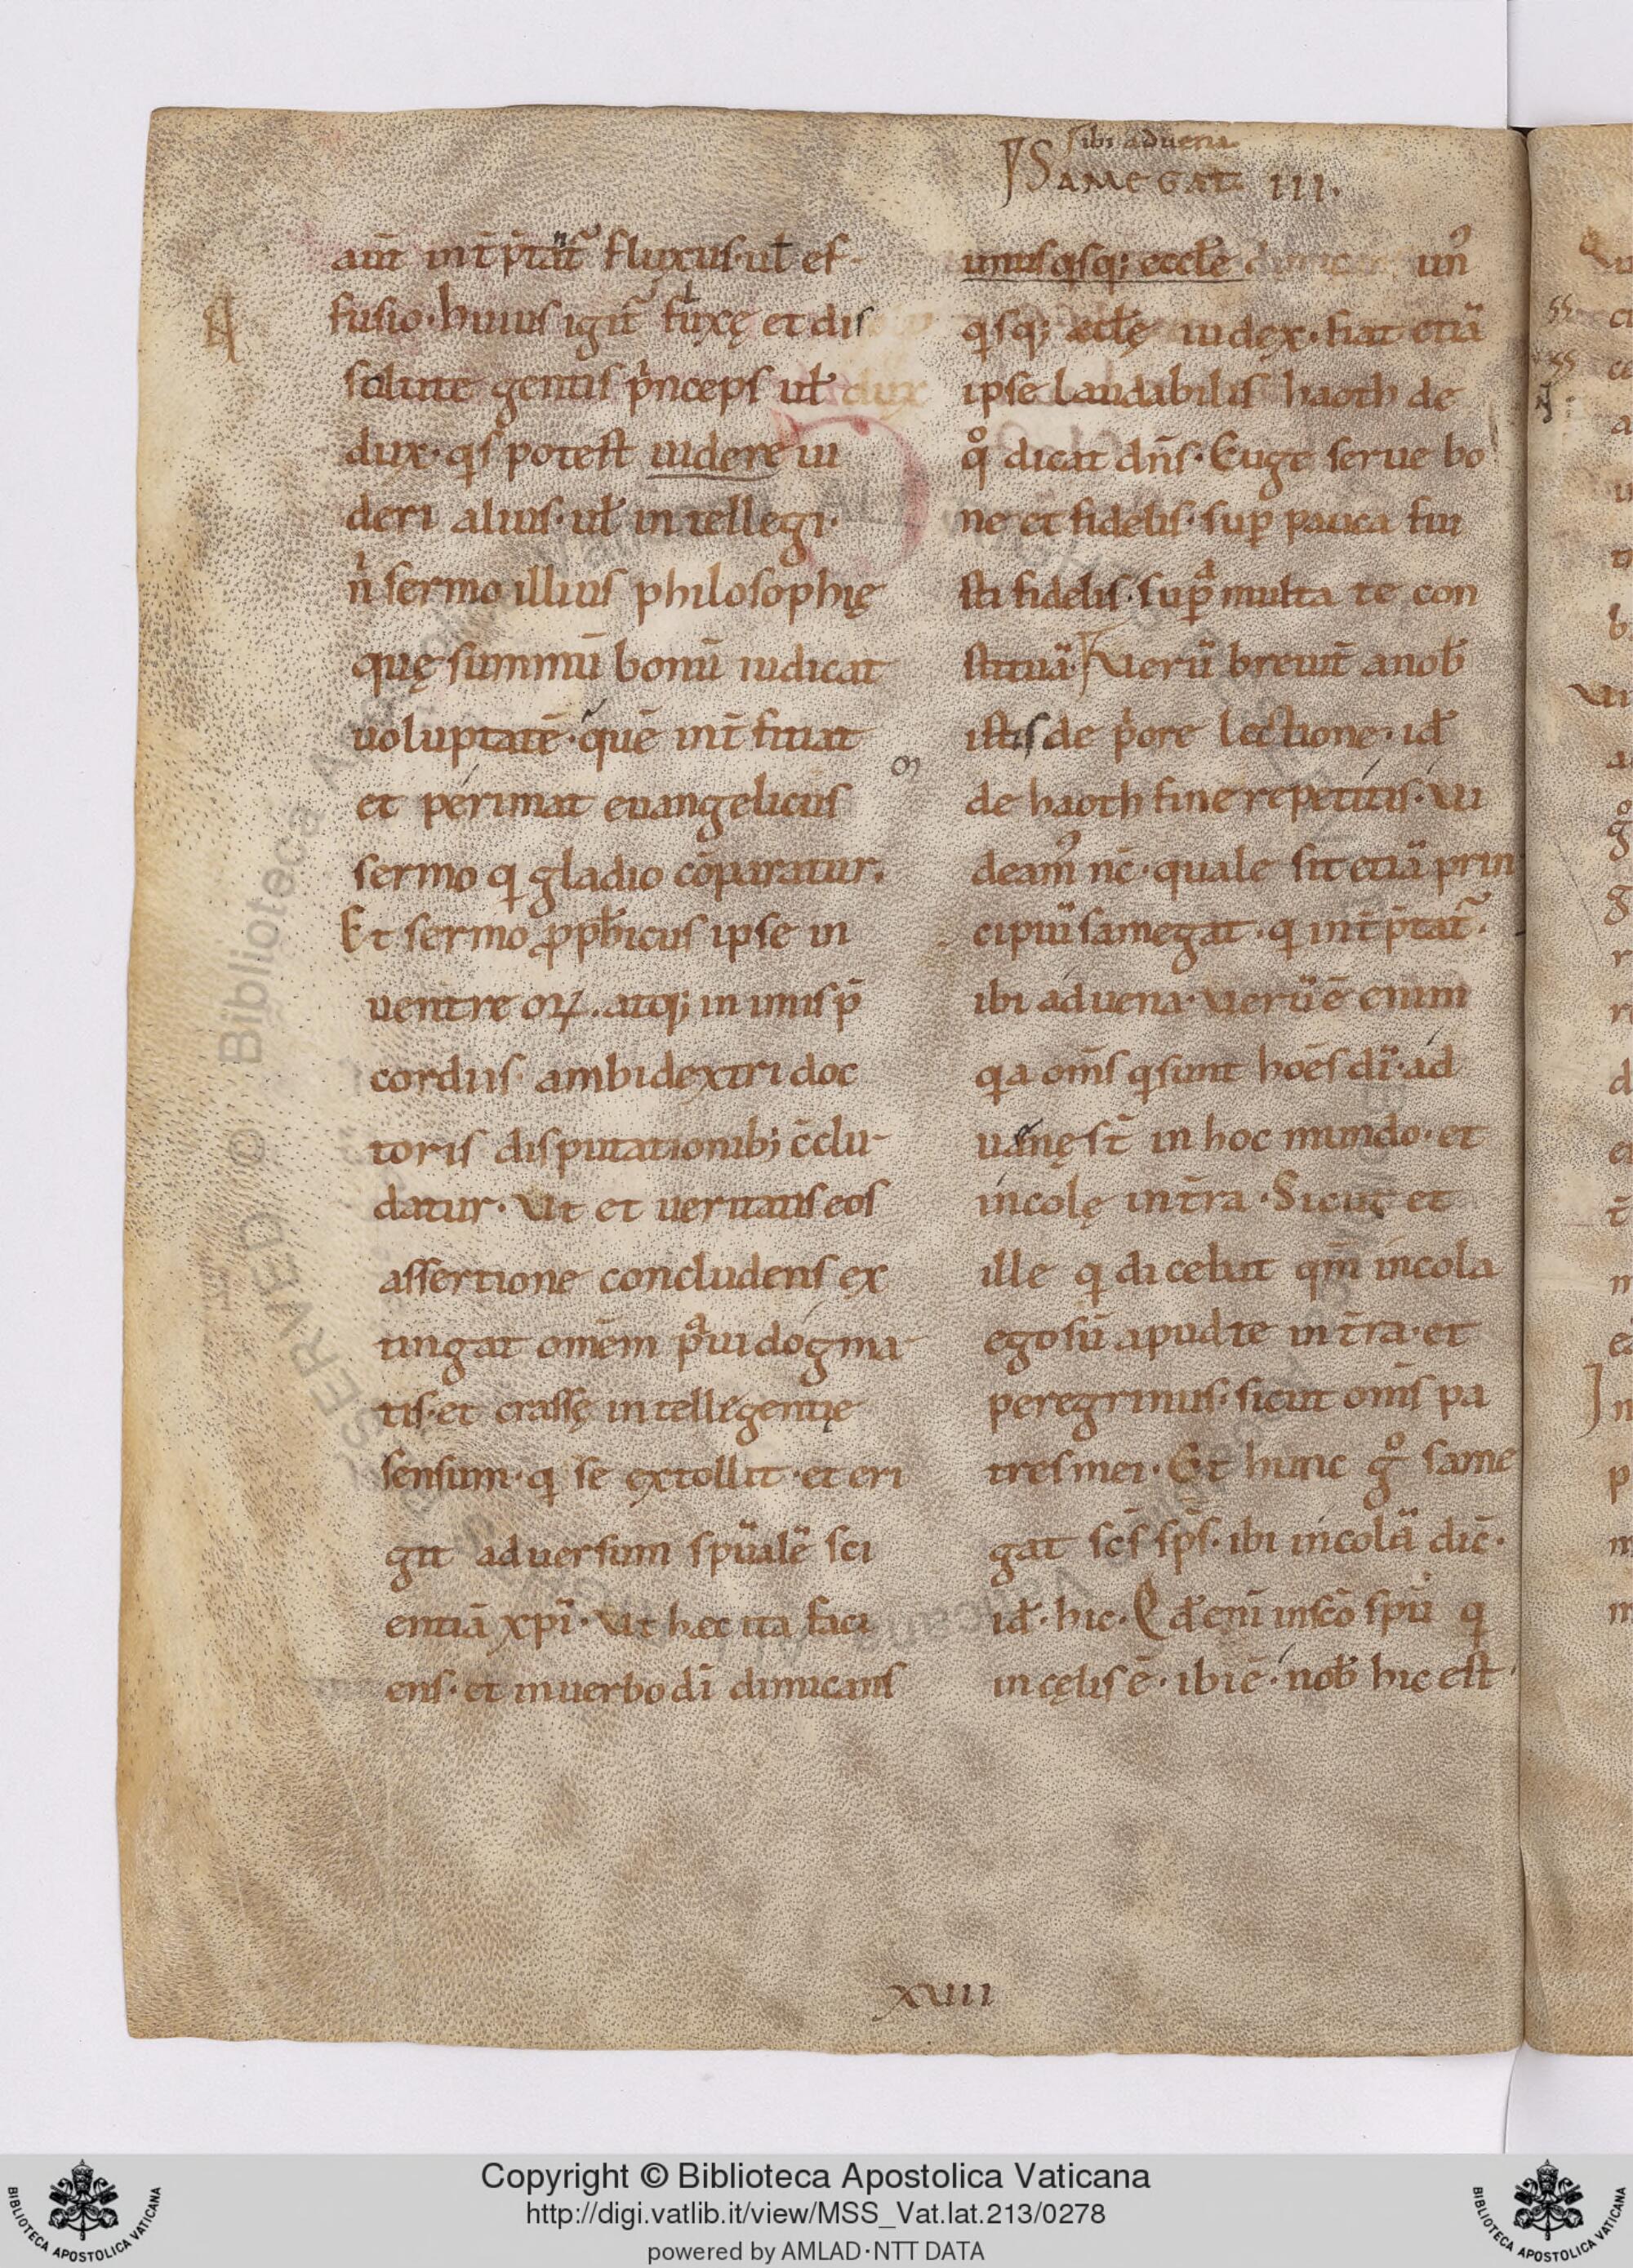 sibi aduena
SAMEGAT III.
aut̄ int̄ p̄tat̄ fluxus· ul̄ ef-
fusio· huius igit̄ fluxę et dis
solute gentis p̄nceps ul̄ dux
dux· qs potest uidere ui
deri alius· ul̄ intellegi·
n̄ sermo illius philosophię
quę summū bonū iudicat
uoluptatē· quē int̄ficiat
et perimat euangelicus
sermo q gladio cōparatur.
Et sermo ꝓph̄icus ipse in
uentre oꝝ. atq; in imis p̄
cordiis· ambidextri doc
toris disputationib; c̄clu-
datur· Vt et ueritatis eos
assertione concludens ex
tingat omēm p̄ui dogma-
tis· et crassę intellegentię
sensum· q se extollit· et eri
git aduersum spūalē sci
entiā xp̄i· Vt hec ita faci
ens· et in uerbo dī dimicans
unusqsq; eccl̄e un᾽
qsq; eccl̄ę iudex· fiat etiā
ipse laudabilis haoth de
qo dicat dn̄s· Euge serue bo
ne et fidelis· sup pauca fui
sti fidelis· supͣ multa te con
stituā· Verū breuit̄ a nob̄
istis de p̄ore lectione· id̄
de haoth fine repetitis· Vi
deam᾽ nc̄· quale sit etiā prin
cipiū samegat· q int̄ p̄tat̄·
ibi aduena· Verū ē enim
qa om̄s q sunt hoēs dī· ad
uenę st̄ in hoc mundo· et
incolę in t̄ra· Sicut et
ille q dicebat qm̄ incola
ego sū apud te in t̄ra· et
peregrinus· sicut om̄s pa
tres mei· Et hunc gͦ same
gat sc̄s sp̄s· ibi incolā dic̄·
id̄· hic· Qd̄ enī in sc̄o sp̄u q
in cęlis ē· ibi ē· nob̄ hic est·
xviii
Copyright © Biblioteca Apostolica Vaticana
http://digi.vatlib.it/view/MSS_Vat.lat.213/0278
powered by AMLAD·NTT DATA